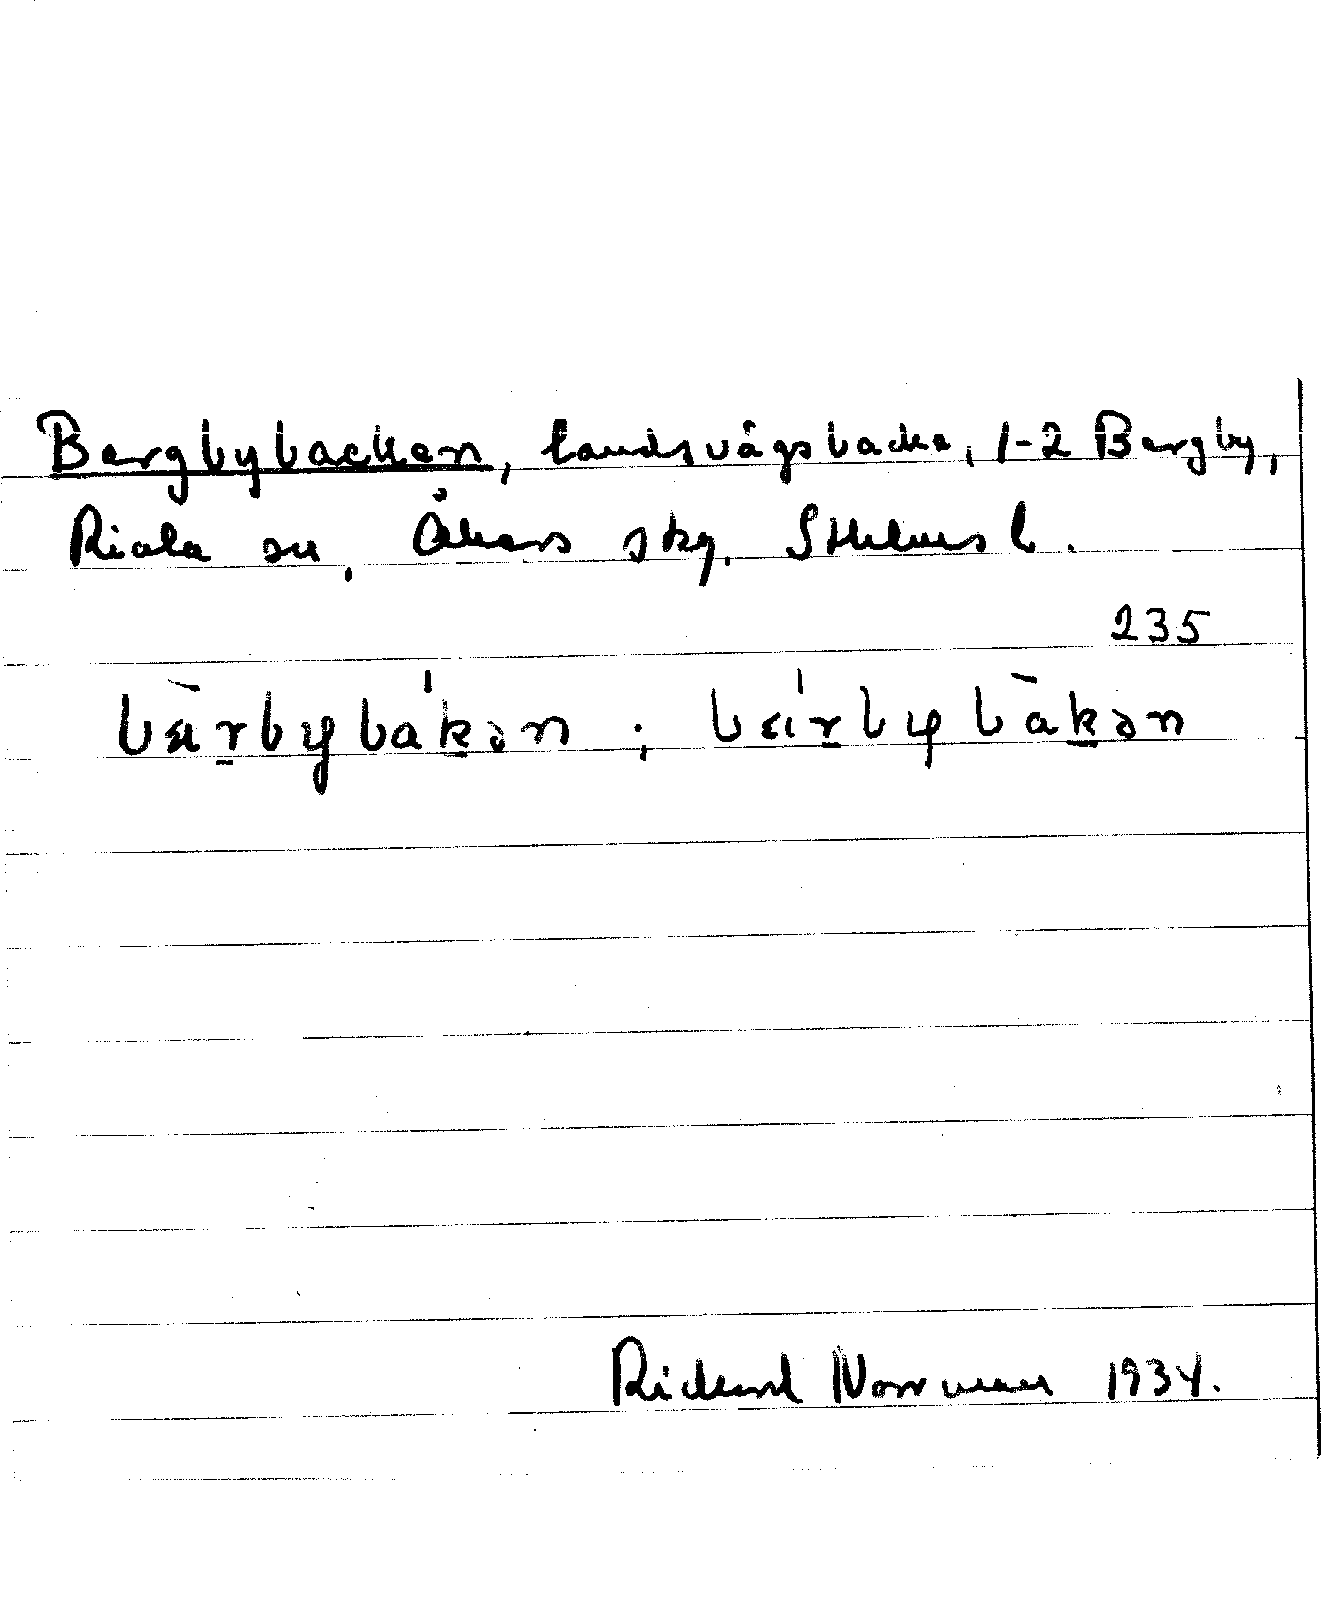 Bergbybacken, landsvägsbacke, 1-2 Bergby,
Riala sn, Åkers skg. Sthlms l.
235
bæ̀r̠bybák̠ən ; bǽr̠bybàk̠ən
Rickard Norrman 1934.